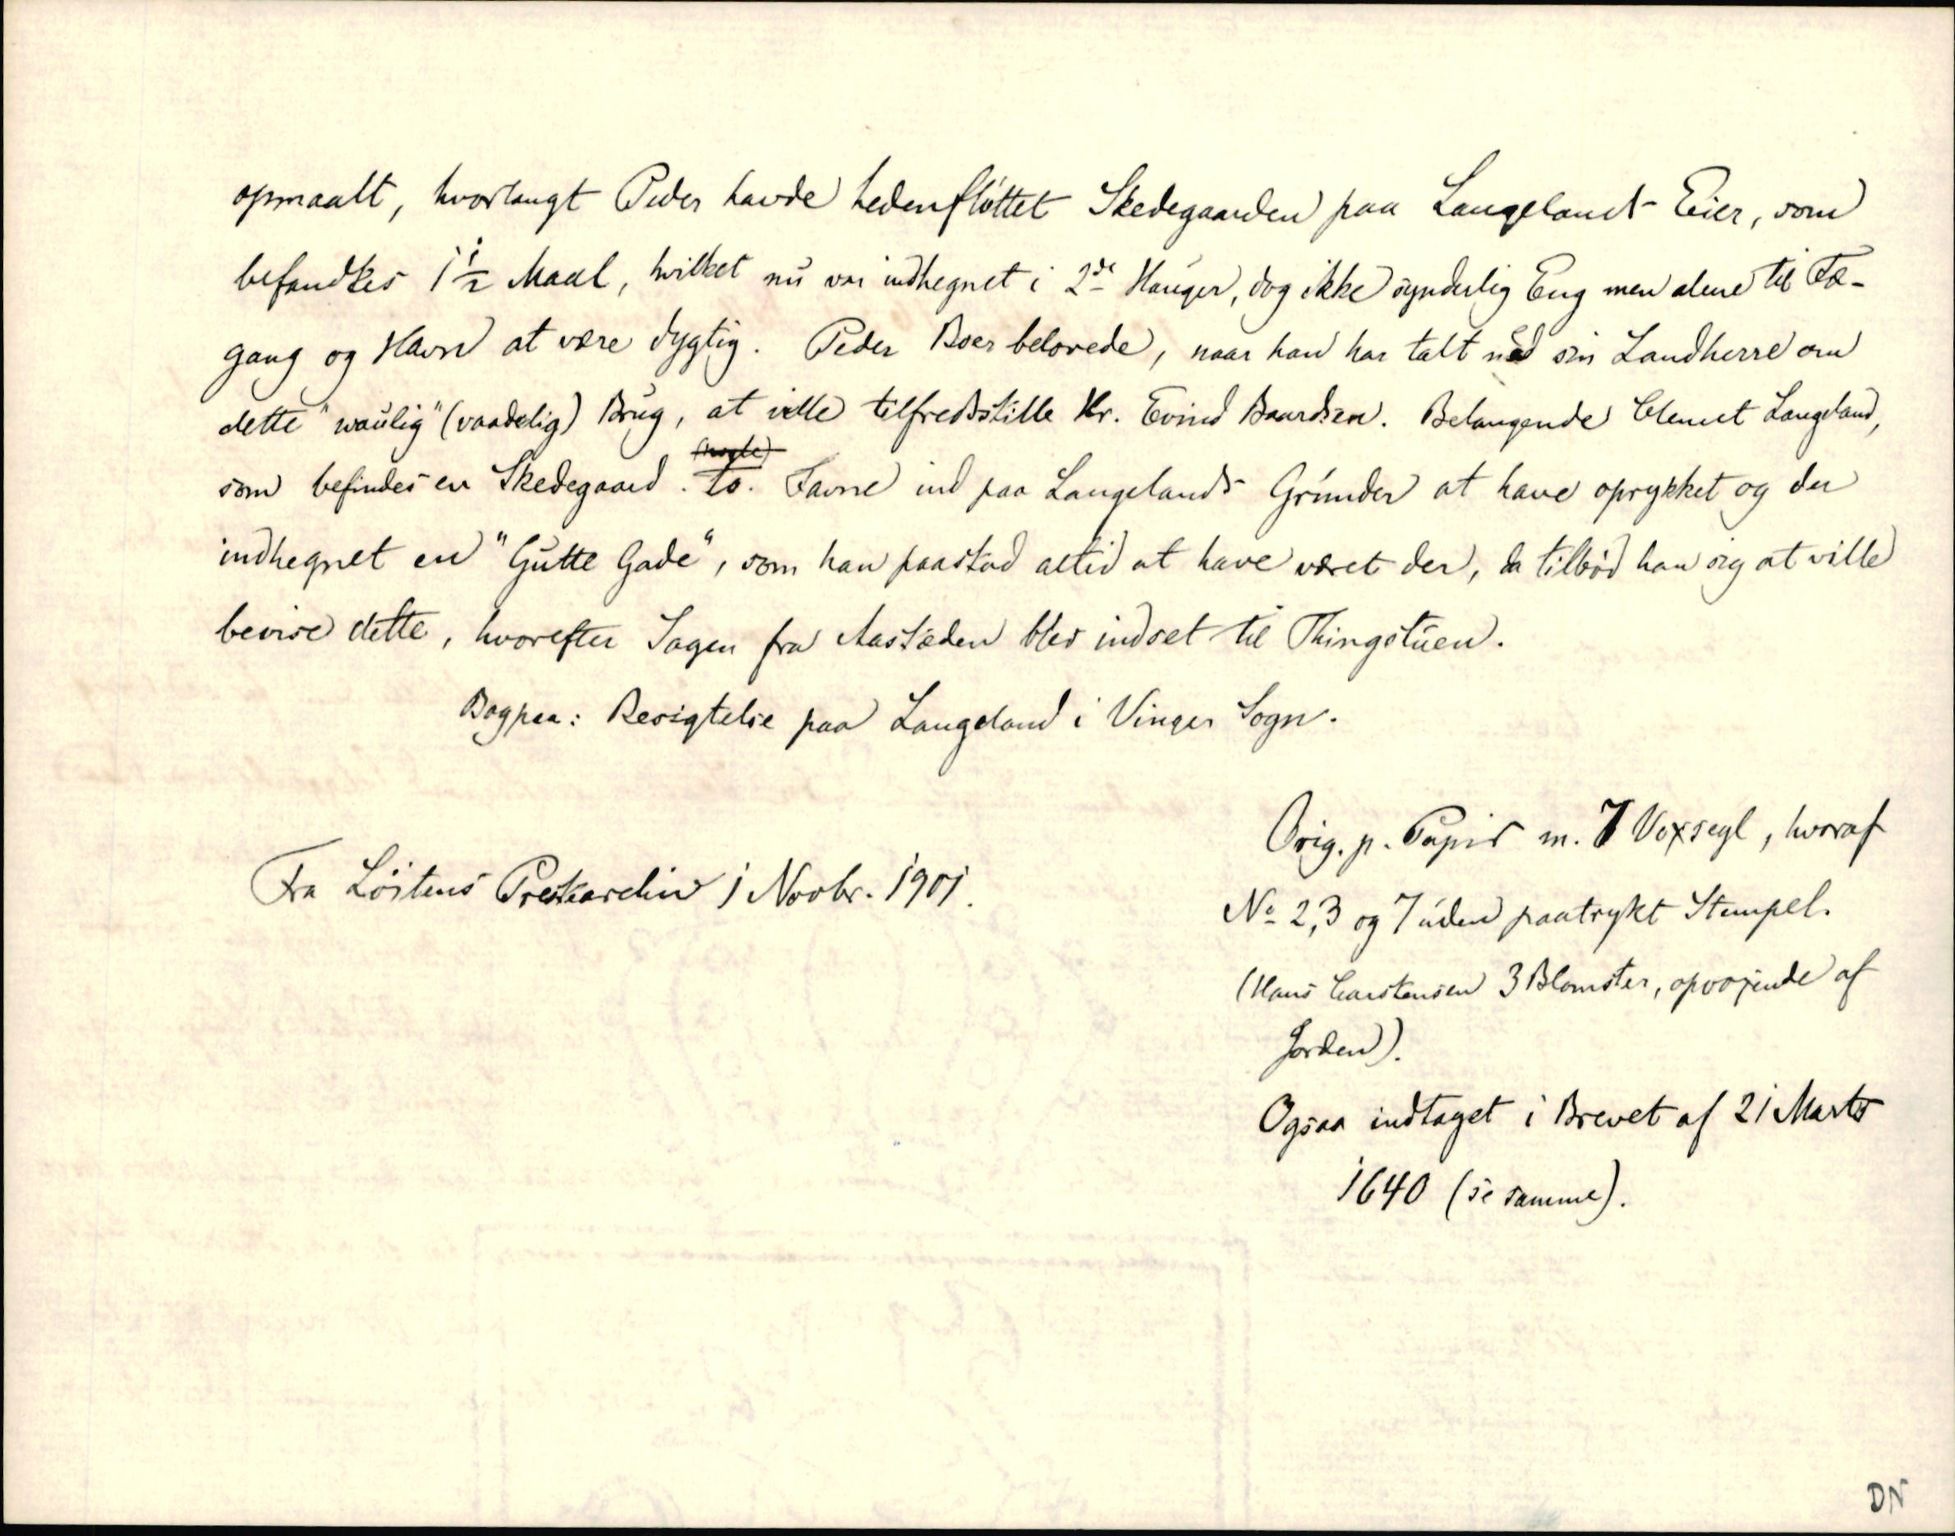 opmaalt, hvorlangt Peder havde hedenfløttet Skedegaarden paa Langelands Eier, som
befandtes 1 1/2 Maal, hvilket nu var indhegnet i 2de Hauger, dog ikke synderlig Eng men alene til Fæ-
gang og Havn at være dygtig. Peder Boer belovede, naar han har talt med sin Landherre om
dette "waulig" (vaadelig) Brug, at ville tilfredsstille Hr. Evind Baardsen. Belangende Clemet Langeland,
som befindes en Skedegaard . to . Favne ind paa Langelands Grunder at have oprykket og der
indhegnet en "Gutte Gade", som han paastod altid at have været der, da tilbød han sig at ville
bevise dette, hvorefter Sagen fra Aastæden blev indset til Thingstuen.
Bagpaa: Besigtelse paa Langeland i Vinger Sogn.
Orig. p. Papir m. 7 Voxsegl, hvoraf
No 2, 3 og 7 uden paatrykt Stempel.
(Hans Carstensen 3 Blomster, opvoxende af
Jorden).
Ogsaa indtaget i Brevet af 21 Marts
1640 (se samme).
Fra Løitens Prestearchiv 1 Novbr. 1901.
DN